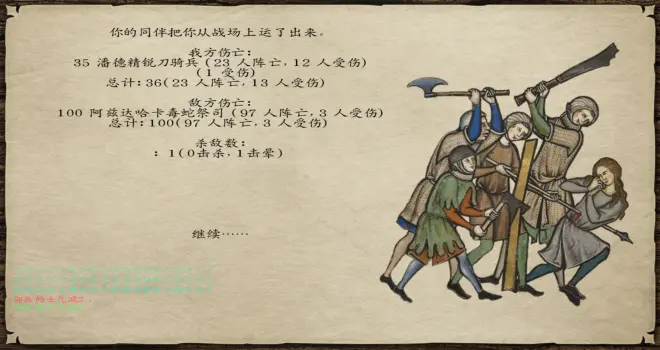 你的同伴把你从战场上运了出来。
我方伤亡:
35 潘德精锐刀骑兵 (23 人阵亡, 12 人受伤)
(1 受伤)
总计: 36(23 人阵亡, 13 人受伤)
敌方伤亡:
100 阿兹达哈卡毒蛇祭司 (97 人阵亡, 3 人受伤)
总计: 100(97 人阵亡, 3 人受伤)
杀敌数:
: 1(0击杀, 1击晕)
继续……